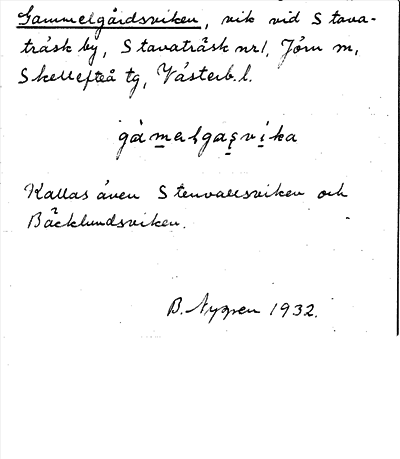 Gammelgårdsviken, vik vid Stava-
träsk by, Stavaträsk nr 1, Jörn sn,
Skellefteå tg, Västerb. l.
gàmalgaṣvi̱ka
Kallas även Stenvallsviken och
Bäcklundsviken.
B. Nygren 1932.